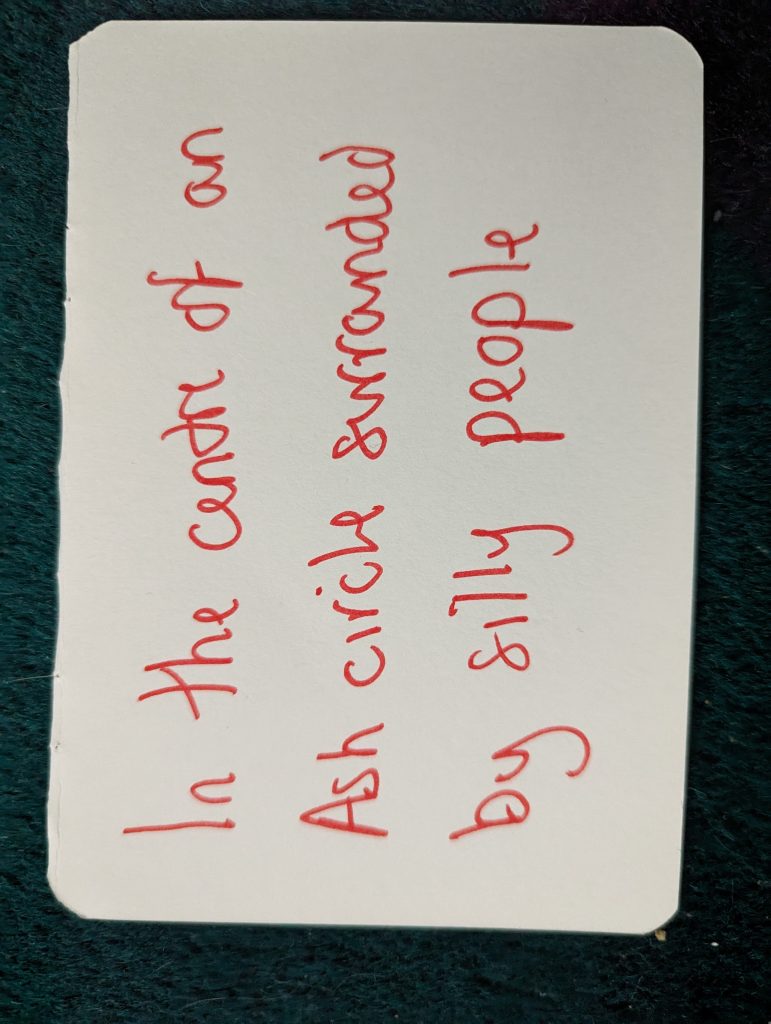 In the centre of an
Ash circle surranded
by silly people